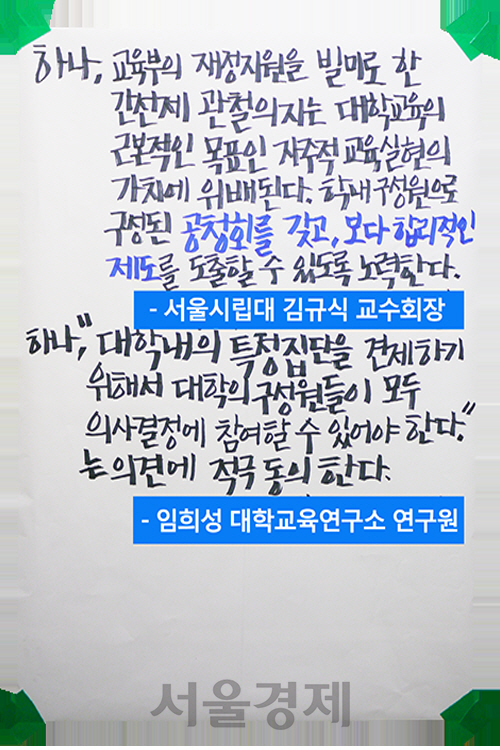 하나, 교육부의 재정지원을 빌미로 한
간선제 관철의지는 대학교육의
근본적인 목표인 자주적 교육실현의
가치에 위배된다. 학내구성원으로
구성된 공청회를 갖고, 보다 합리적인
제도를 도출할 수 있도록 노력한다.
- 서울시립대 김규식 교수회장
하나, "대학내의 특정집단을 견제하기
위해서 대학의 구성원들이 모두
의사결정에 참여할 수 있어야 한다."
는 의견에 적극 동의 한다.
- 임희성 대학교육연구소 연구원
서울경제